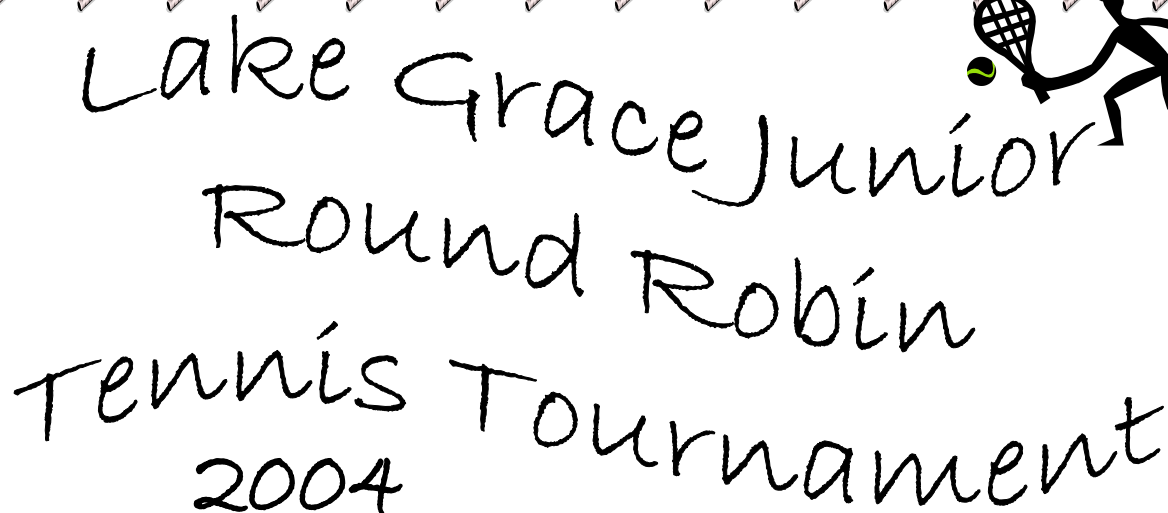 Lake Grace Junior
Round Robin
Tennis Tournament
2004